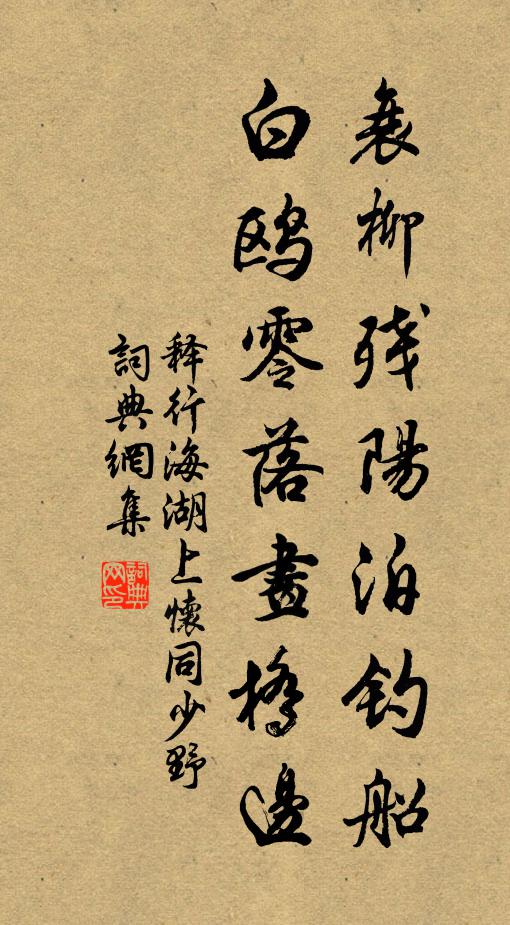 衰柳残陽泊钓船
白鸥零落畫橋邊
释行海湖上懷同少野
詞典網集
詞典网印